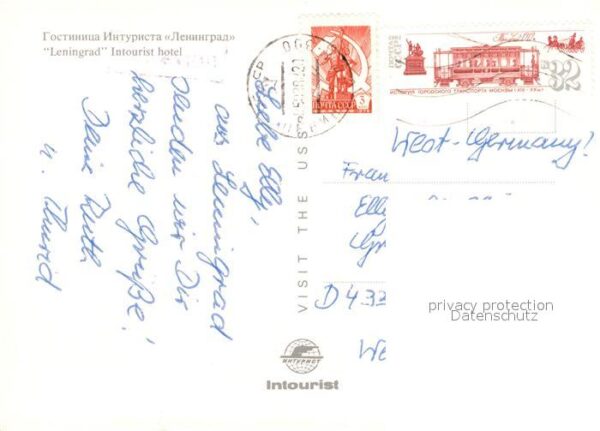 Гостиница Интуриста «Ленинград»
"Leningrad" Intourist hotel
Liebe Elly,
aus Leningrad
senden wir Dir
herzliche Grüße!
Deine Ruth
u.
VISIT THE USS
ПОЧТА СССР
3
1981
ПОЧТА
СССР
32
ИСТОРИЯ ГОРОДСКОГО ТРАНСПОРТА МОСКВЫ
West-Germany!
Frau
Elle
D 433
We
privacy protection
Datenschutz
ИНТУРИСТ
Intourist